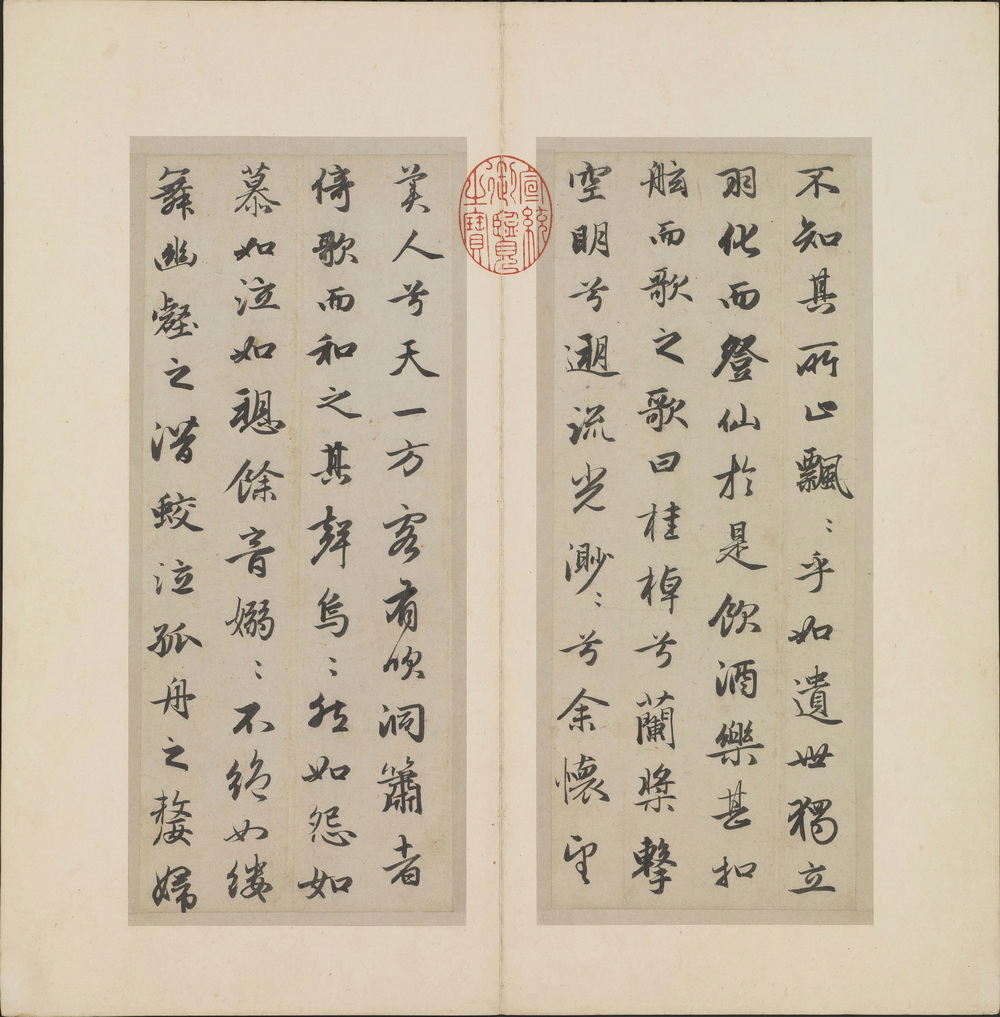 不知其所止飄〻乎如遺世獨立
羽化而登仙於是飲酒樂甚扣
舷而歌之歌曰桂棹兮蘭槳擊
空明兮遡流光渺〻兮余懷望
宣統御覽之寶
美人兮天一方客有吹洞簫者
倚歌而和之其聲烏〻然如怨如
慕如泣如愬餘音嫋〻不絕如縷
舞幽壑之潛蛟泣孤舟之嫠婦